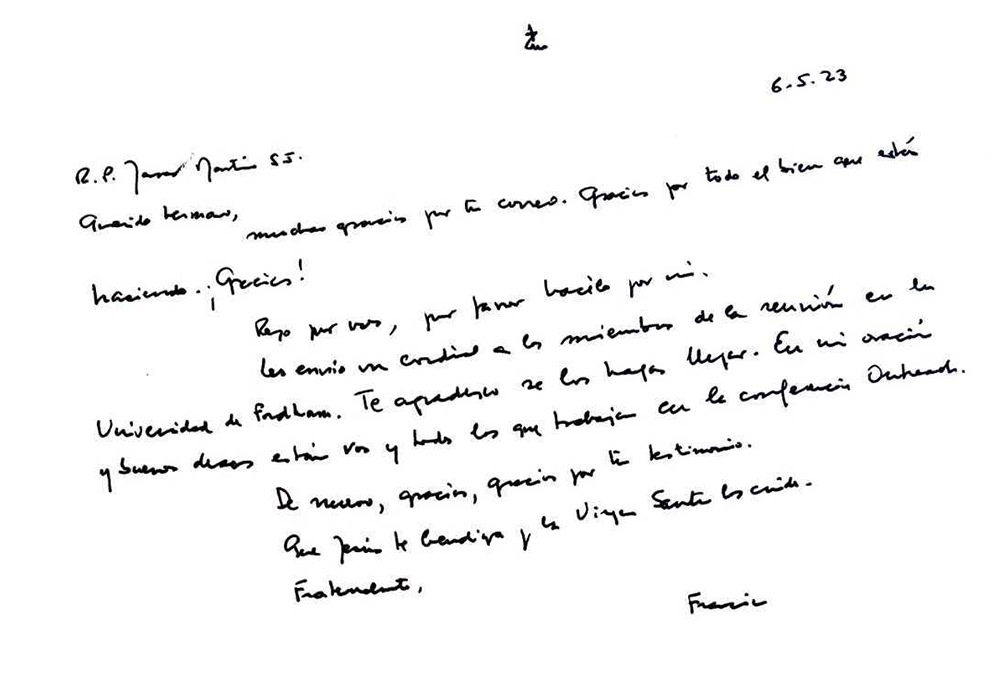 6.5.23
R.P. James Martin SJ.
Querido hermano,
muchas gracias por tu correo. Gracias por todo el bien que estás
haciendo. ¡Gracias!
Rezo por vos, por favor hacelo por mi.
Les envío un cordial a los miembros de la reunión en la
Universidad de Fordham. Te agradesco se los hagas llegar. En mi oración
y buenos deseos están vos y todos los que trabajan en la conferencia Outreach.
De nuevo, gracias, gracias por tu testimonio.
Que Jesús te bendiga y la Virgen Santa los cuide.
Fraternalmente,
Francisco